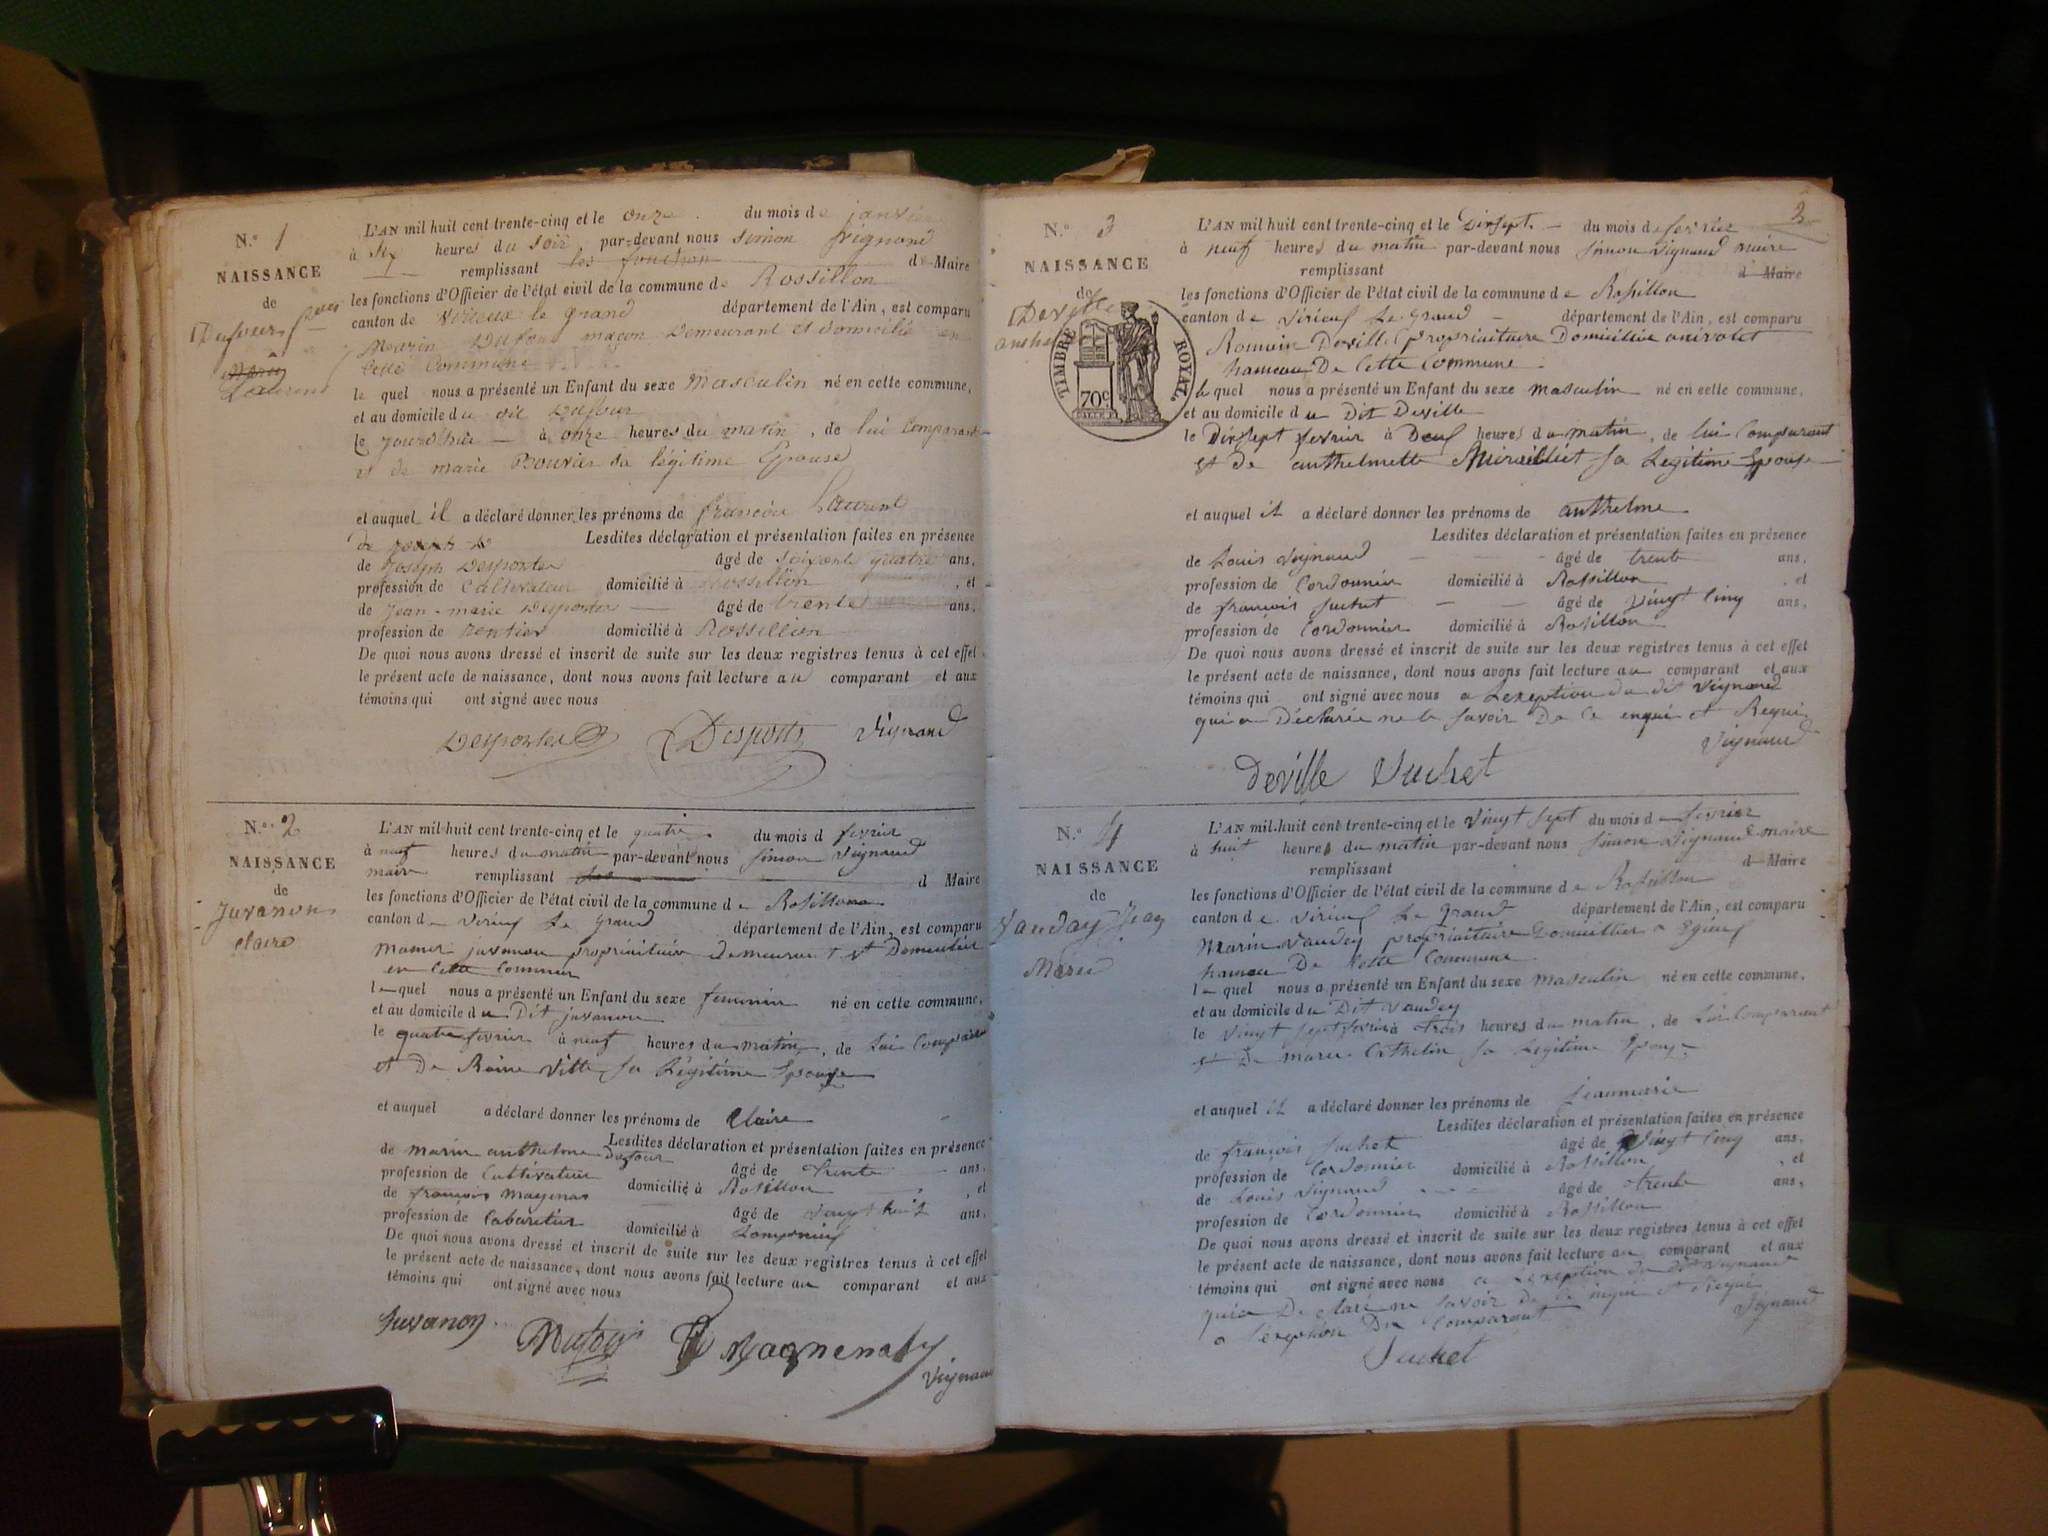 N.° 1
NAISSANCE
de
Dufour
Marin
Laurent
L'AN mil huit cent trente-cinq et le onze du mois de janvier
à six heures du soir, par-devant nous simon vignand
remplissant les fonction de Maire
les fonctions d'Officier de l'état civil de la commune de Rossillon
canton de virieux le grand département de l'Ain, est comparu
Marin Dufour maçon Demeurant et domicilié en
cette Commune
le quel nous a présenté un Enfant du sexe masculin né en cette commune,
et au domicile du dit Dufour
le jourd'hui à onze heures du matin, de lui Comparant
et de marie Bouvier sa légitime Epouse
et auquel il a déclaré donner les prénoms de françois Laurent
Lesdites déclaration et présentation faites en présence
de Joseph Desportes âgé de soixante quatre ans,
profession de Cultivateur domicilié à Rossillon, et
de Jean-marie Desportes âgé de trente ans,
profession de rentier domicilié à Rossillion
De quoi nous avons dressé et inscrit de suite sur les deux registres tenus à cet effet
le présent acte de naissance, dont nous avons fait lecture au comparant et aux
témoins qui ont signé avec nous
Desportes Desportes Vignand
N.° 2
NAISSANCE
de
Juvanon
claire
L'AN mil huit cent trente-cinq et le quatre du mois d fevrier
à neuf heures du matin par-devant nous simon vignand
maire remplissant d Maire
les fonctions d'Officier de l'état civil de la commune de Rosillon
canton de virieuf Le grand département de l'Ain, est comparu
juvanon propriaitaire demeurant et Domicilier
en Cette Commune
le quel nous a présenté un Enfant du sexe feminin né en cette commune,
et au domicile du Dit juvanon
le quatre fevrier à neuf heures du matin, de Lui Comparant
et De Raine Ville sa Légitime Epouse
et auquel a déclaré donner les prénoms de Claire
Lesdites déclaration et présentation faites en présence
de marin anthelme Dufour âgé de trente ans,
profession de Cultivateur domicilié à Rosillon, et
de françois Magenas âgé de vingt huit ans,
profession de Cabaretier domicilié à
De quoi nous avons dressé et inscrit de suite sur les deux registres tenus à cet effet
le présent acte de naissance, dont nous avons fait lecture au comparant et aux
témoins qui ont signé avec nous
Juvanon. Dufour Magnenas
Vignand
2
N.° 3
NAISSANCE
de
Deville
anthelme
TIMBRE ROYAL
70c
L'AN mil huit cent trente-cinq et le Dixsept du mois de fevrier
à neuf heures du matin par-devant nous simon vignand maire
remplissant d Maire
les fonctions d'Officier de l'état civil de la commune de Rosillon
canton de virieuf Le Grand département de l'Ain, est comparu
Romain Deville propriaitaire Domicilié
hameau De Cette Commune
le quel nous a présenté un Enfant du sexe masculin né en cette commune,
et au domicile du Dit Deville
le Dixsept fevrier à Deuf heures du matin, de lui Comparant
et de anthelmette sa Legitime Epouse
et auquel il a déclaré donner les prénoms de anthelme
Lesdites déclaration et présentation faites en présence
de Louis vignand âgé de trente ans,
profession de Cordonnier domicilié à Rosillon, et
de françois Suchet âgé de vingt Cinq ans,
profession de Cordonnier domicilié à Rosillon
De quoi nous avons dressé et inscrit de suite sur les deux registres tenus à cet effet
le présent acte de naissance, dont nous avons fait lecture au comparant et aux
témoins qui ont signé avec nous a Lexeption du dit vignand
qui a Déclarée ne le savoir De Ce enqui et Requi
Vignand
deville Suchet
N.° 4
NAISSANCE
de
Vauday Jean
Marie
L'AN mil-huit cent trente-cinq et le vingt sept du mois de fevrier
à huit heures du matin par-devant nous simon vignand maire
remplissant d Maire
les fonctions d'Officier de l'état civil de la commune de Rosillon
canton de virieuf Le Grand département de l'Ain, est comparu
Marin Vaudey propriaitaire Domicillier a Egieuf
hameau De Cette Commune
le quel nous a présenté un Enfant du sexe masculin né en cette commune,
et au domicile du Dit Vaudey
le vingt sept fevrier à trois heures du matin, de Lui Comparant
et De marie Cathelin sa Legitime Epouse
et auquel il a déclaré donner les prénoms de jeanmarie
Lesdites déclaration et présentation faites en présence
de françois Suchet âgé de vingt Cinq ans,
profession de Cordonnier domicilié à Rosillon, et
de Louis vignand âgé de trente ans,
profession de Cordonnier domicilié à Rosillon
De quoi nous avons dressé et inscrit de suite sur les deux registres tenus à cet effet
le présent acte de naissance, dont nous avons fait lecture au comparant et aux
témoins qui ont signé avec nous a Lexeption du dit vignand
qui a De claré ne savoir de Ce inqui et Requi
a l'exeption Du Comparant Vignand
Suchet